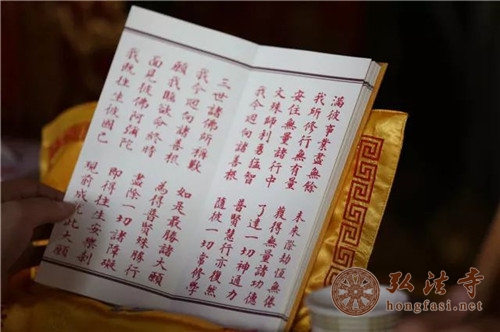 滿彼事業盡無餘 未來際劫恆無倦
我所修行無有量 獲得無量諸功德
安住無量諸行中 了達一切神通力
文殊師利勇猛智 普賢慧行亦復然
我今迴向諸善根 隨彼一切常修學
三世諸佛所稱歎 如是最勝諸大願
我今迴向諸善根 為得普賢殊勝行
願我臨欲命終時 盡除一切諸障礙
面見彼佛阿彌陀 即得往生安樂剎
我既往生彼國已 現前成就此大願
弘法寺
hongfasi.net